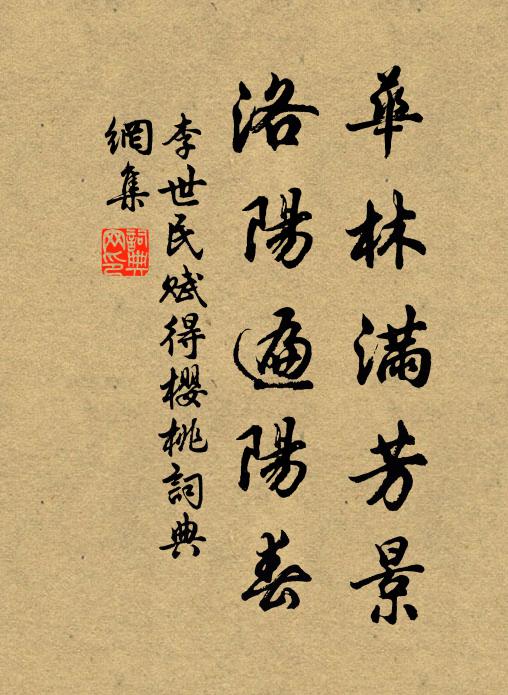 華林滿芳景
洛陽遍陽春
李世民賦得櫻桃詞典
網集
詞典網印